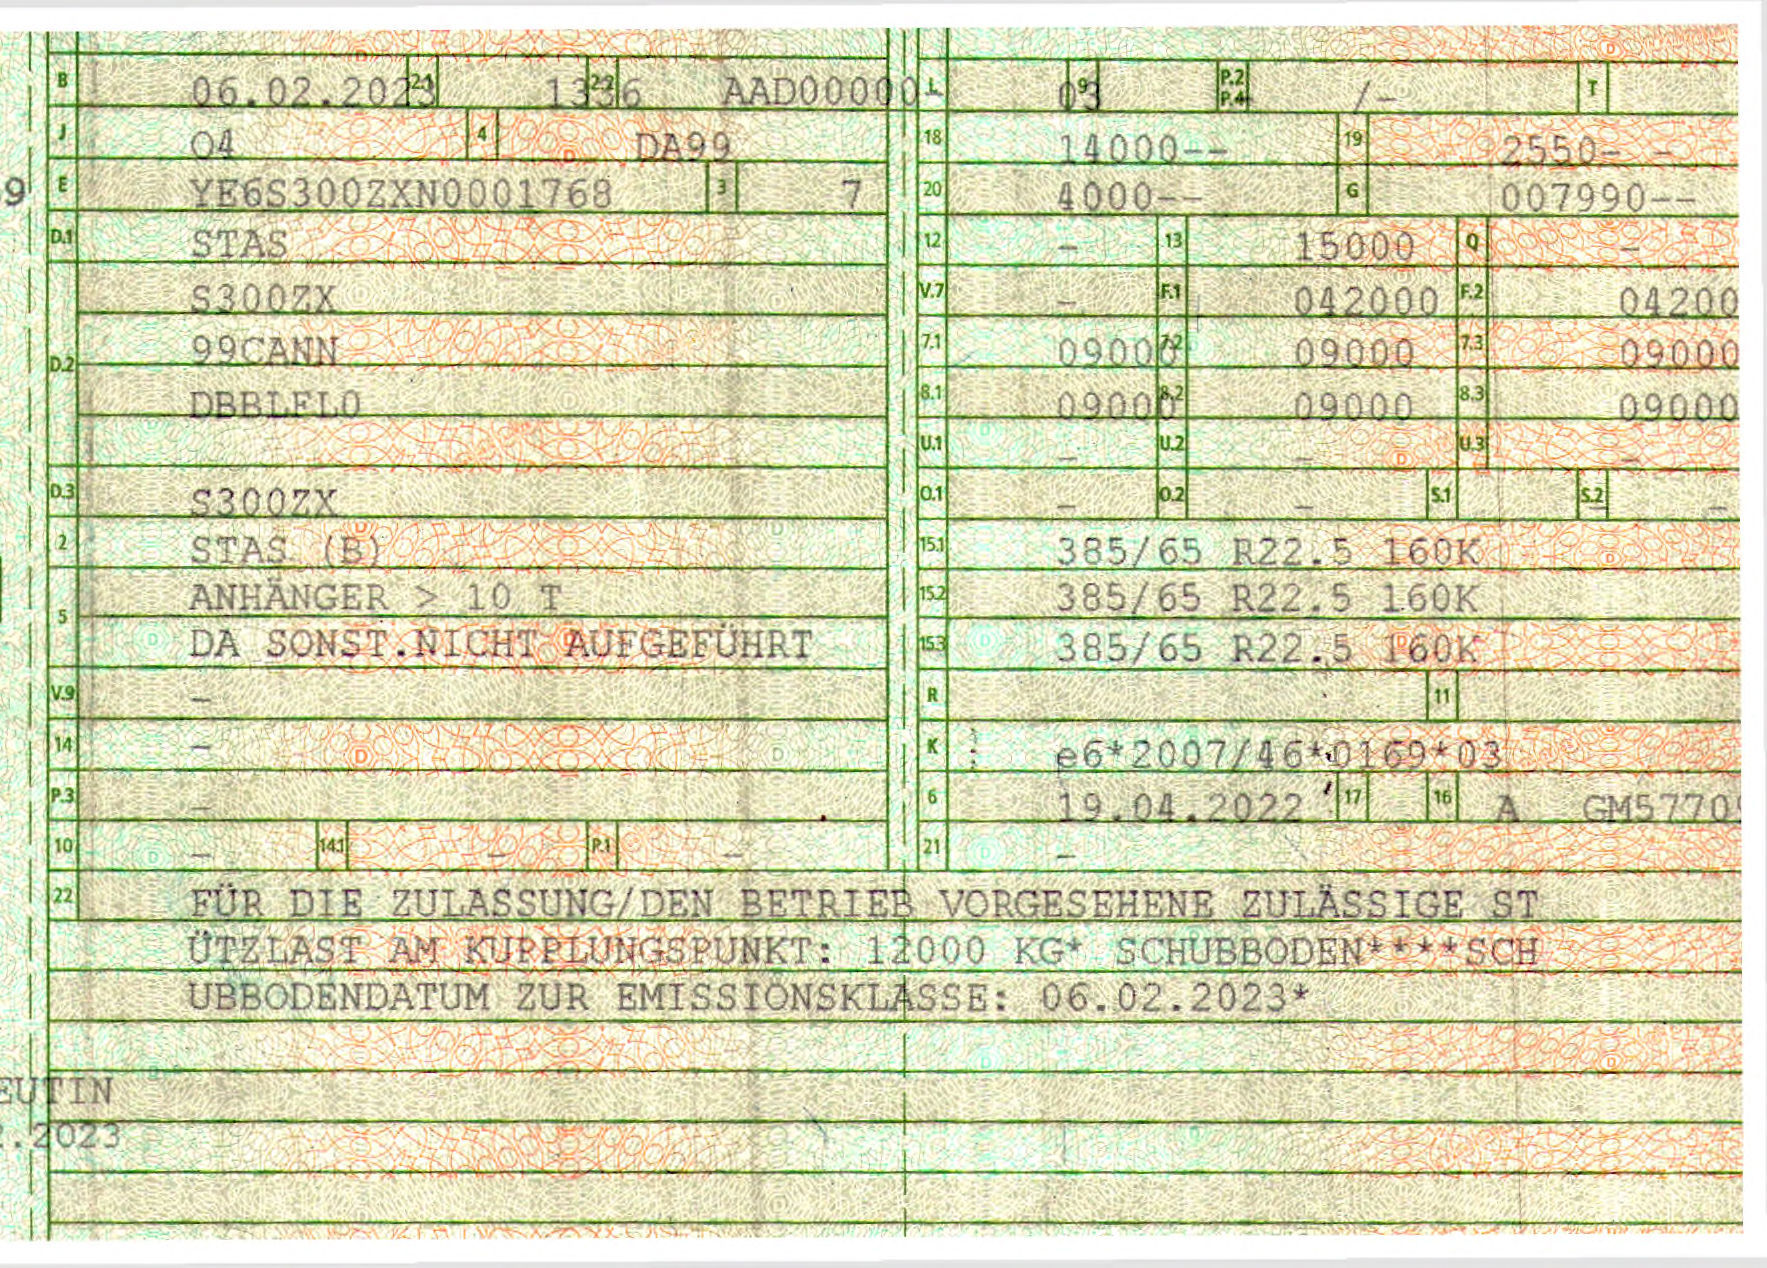 B 06.02.2023 2.1 1336 2.2 AAD00000- L 03 9 P.2 P.4 - /- T
J 04 4 DA99 18 14000-- 19 2550- -
9 E YE6S300ZXN0001768 3 7 20 4000-- G 007990--
D.1 STAS 12 - 13 15000 Q -
S300ZX V.7 - F.1 042000 F.2 04200
D.2 99CANN 7.1 09000 7.2 09000 7.3 09000
DBBLFL0 8.1 09000 8.2 09000 8.3 09000
U.1 - U.2 - U.3 -
D.3 S300ZX O.1 - O.2 - S.1 S.2 - -
2 STAS (B) 15.1 385/65 R22.5 160K
ANHÄNGER > 10 T 15.2 385/65 R22.5 160K
5 DA SONST.NICHT AUFGEFÜHRT 15.3 385/65 R22.5 160K
V.9 - R 11
14 - K e6*2007/46*0169*03
P.3 - 6 19.04.2022 17 16 A GM5770
10 - 14.1 - P.1 - 21 -
22 FÜR DIE ZULASSUNG/DEN BETRIEB VORGESEHENE ZULÄSSIGE ST
ÜTZLAST AM KUPPLUNGSPUNKT: 12000 KG* SCHUBBODEN****SCH
UBBODENDATUM ZUR EMISSIONSKLASSE: 06.02.2023*
EUTIN
.2023